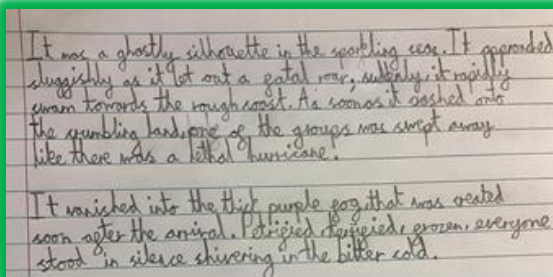 It was a ghostly silhouette in the sparkling seas. It approached
sluggishly as it let out a fatal roar, suddenly, it rapidly
swam towards the rough coast. As soon as it dashed onto
the crumbling land, one of the groups was swept away
like there was a lethal hurricane.
It vanished into the thick purple fog that was created
soon after the arrival. Petrified, terrified, frozen, everyone
stood in silence shivering in the bitter cold.